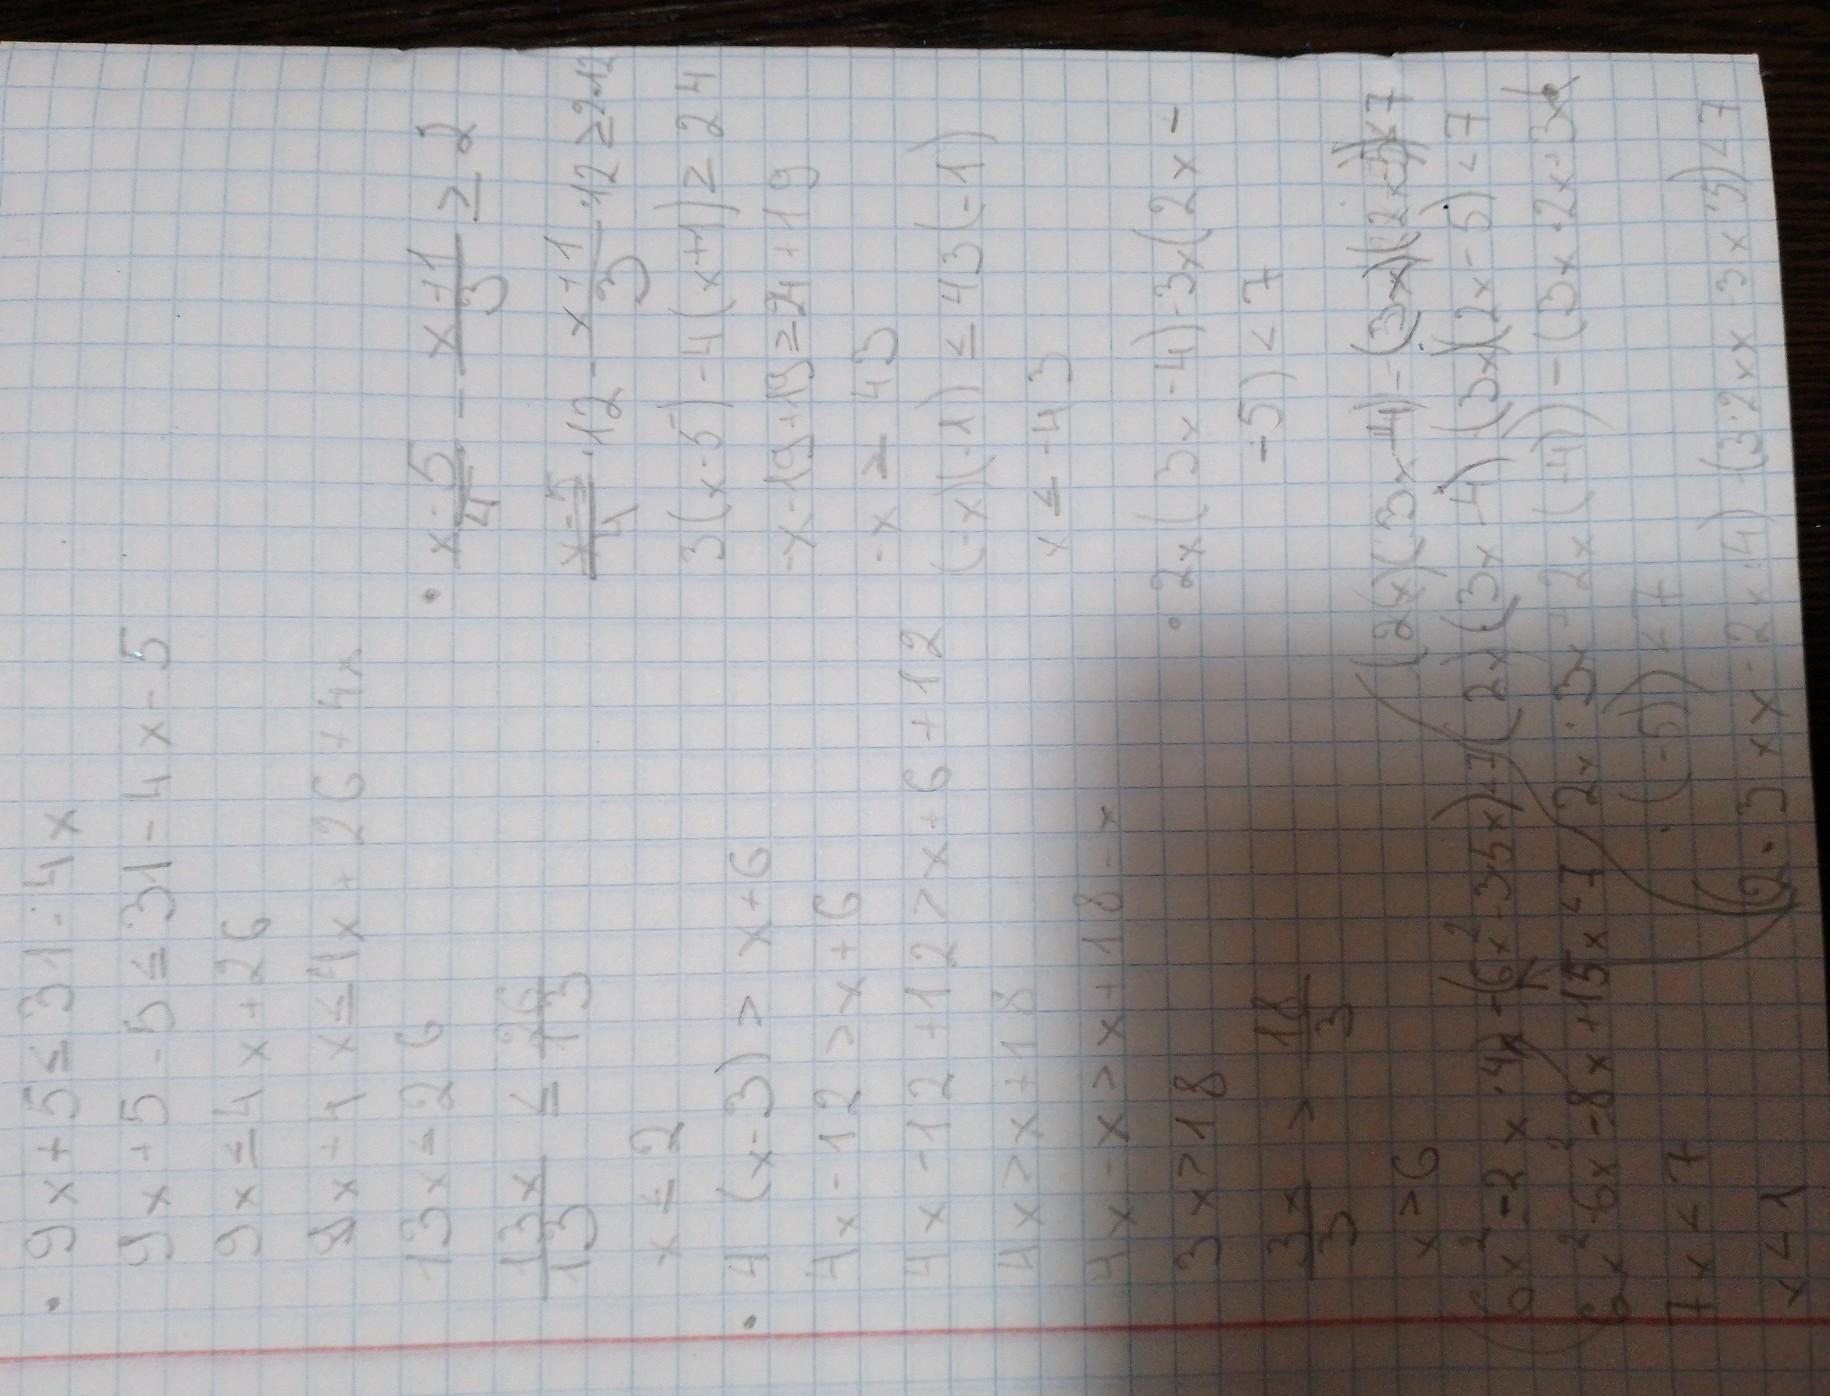 • 9x+5≤31-4x
9x+5-5≤31-4x-5
9x≤-4x+26
9x+4x≤-4x+26+4x
13x≤26
13x/13 ≤ 26/13
x≤2
• 4(x-3)>x+6
4x-12>x+6
4x-12+12>x+6+12
4x>x+18
4x-x>x+18-x
3x>18
3x/3 > 18/3
x>6
• x-5/4 - x+1/3 ≥ 2
x-5/4 ·12 - x+1/3 ·12≥2·12
3(x-5)-4(x+1)≥24
-x-19+19≥24+19
-x≥43
(-x)(-1)≤43(-1)
x≤-43
• 2x(3x-4)-3x(2x-
-5)<7
(2x)(3x-4)-(3x)(2x-5)<7
(2x)(3x-4)(3x)(2x-5)<7
2x·3x-2x(-4)-(3x·2x-3x
·(-5))<7
(2·3xx-2x·4)-(3·2xx-3x·5)<7
6x²-8x-6x²+15x<7
7x<7
x<1